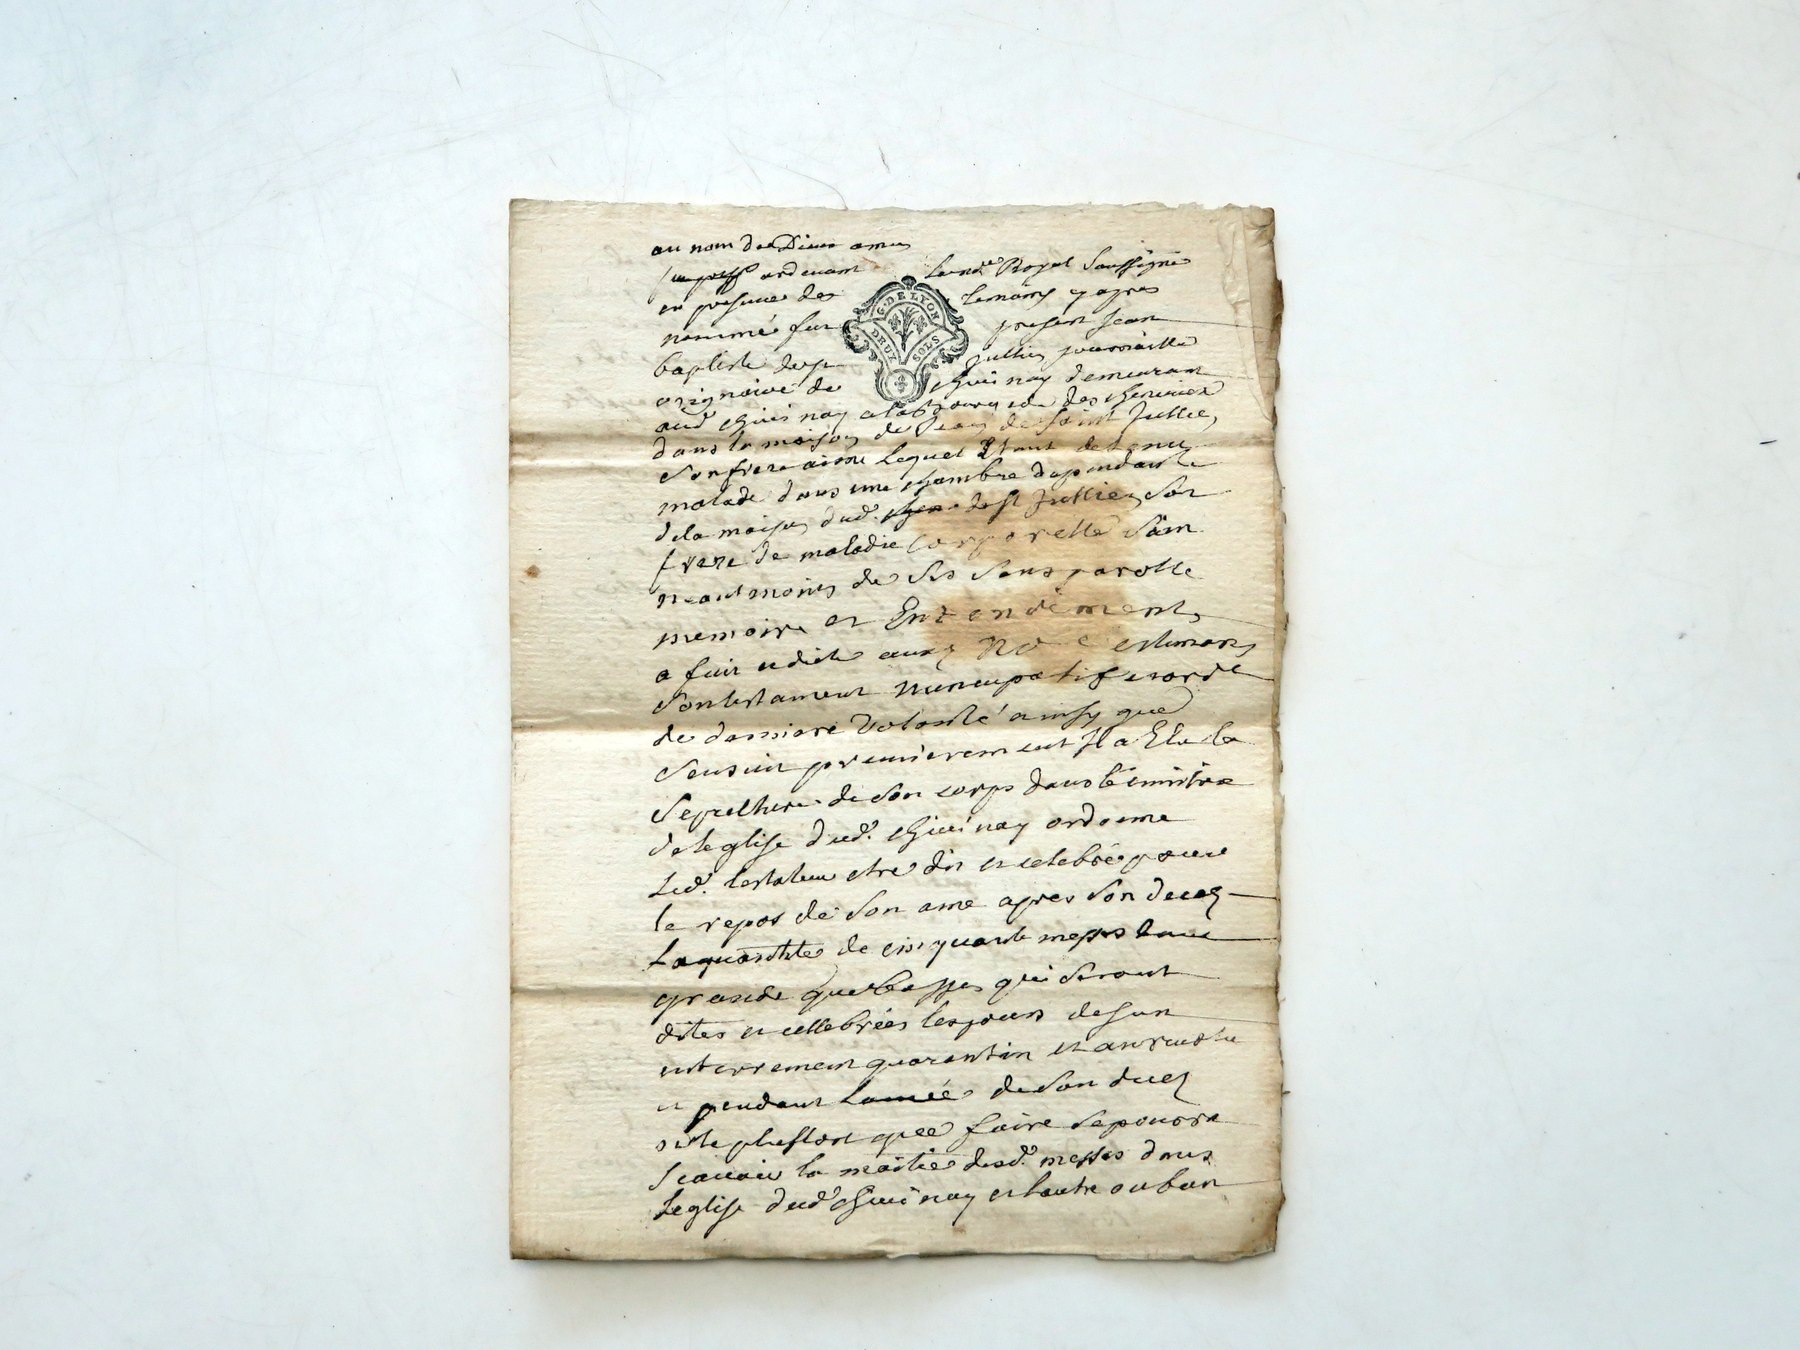 au nom de Dieu amen
pardevant le no.re Royal Soussigné
en presence des temoins cy apres
nommés fut present Jean
baptiste de st jullien
originaire de Chuinay demeurant
aud. Chuinay
dans la maison de Jean de saint Jullien
son frere aisné lequel Etant detenu
malade dans une chambre dependante
de la maison dud. de st Jullien son
frere de maladie corporelle sain
neantmoins de ses sens parolle
memoire et Entendement
a fait et dicté
son testament nuncupatif et ordre
de derniere Volonté ainsy que
sensuit premierement Il a Elu la
sepulture de son corps dans le cimitre
de leglise dud. Chuinay ordonne
led. testateur etre dit et celebré pour
le repos de son ame apres son decez
la quantité de cinquante messes tant
grande que basses qui seront
dites et cellebrées les jours de son
enterrement quarantin et
et pendant lannée de son decez
et le plustost que faire se pourra
scavoir la moitié desd. messes dans
leglise dud. Chuinay et lautre au bon
G. DE LYON
DEUX SOLS